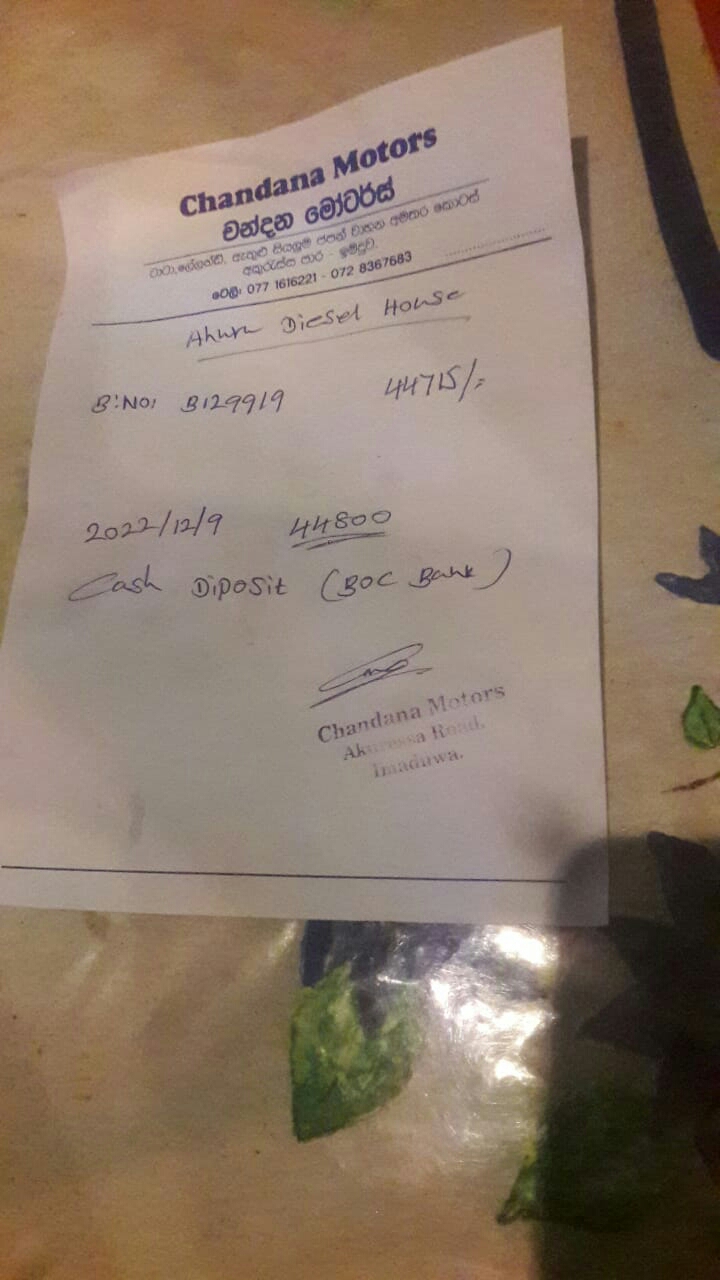 Chandana Motors
චන්දන මෝටර්ස්
ටාටා,ලේලන්ඩ්, ඇතුළු සියලුම ජපන් වාහන අමතර කොටස්
අකුරැස්ස පාර - ඉමදුව.
ටෙලි: 077 1616221 - 072 8367683
Diesel House
B:NO: B129919 44715/=
2022/12/9 44800
Cash Diposit (BOC Bank)
Chandana Motors
Akuressa Road,
Imaduwa.